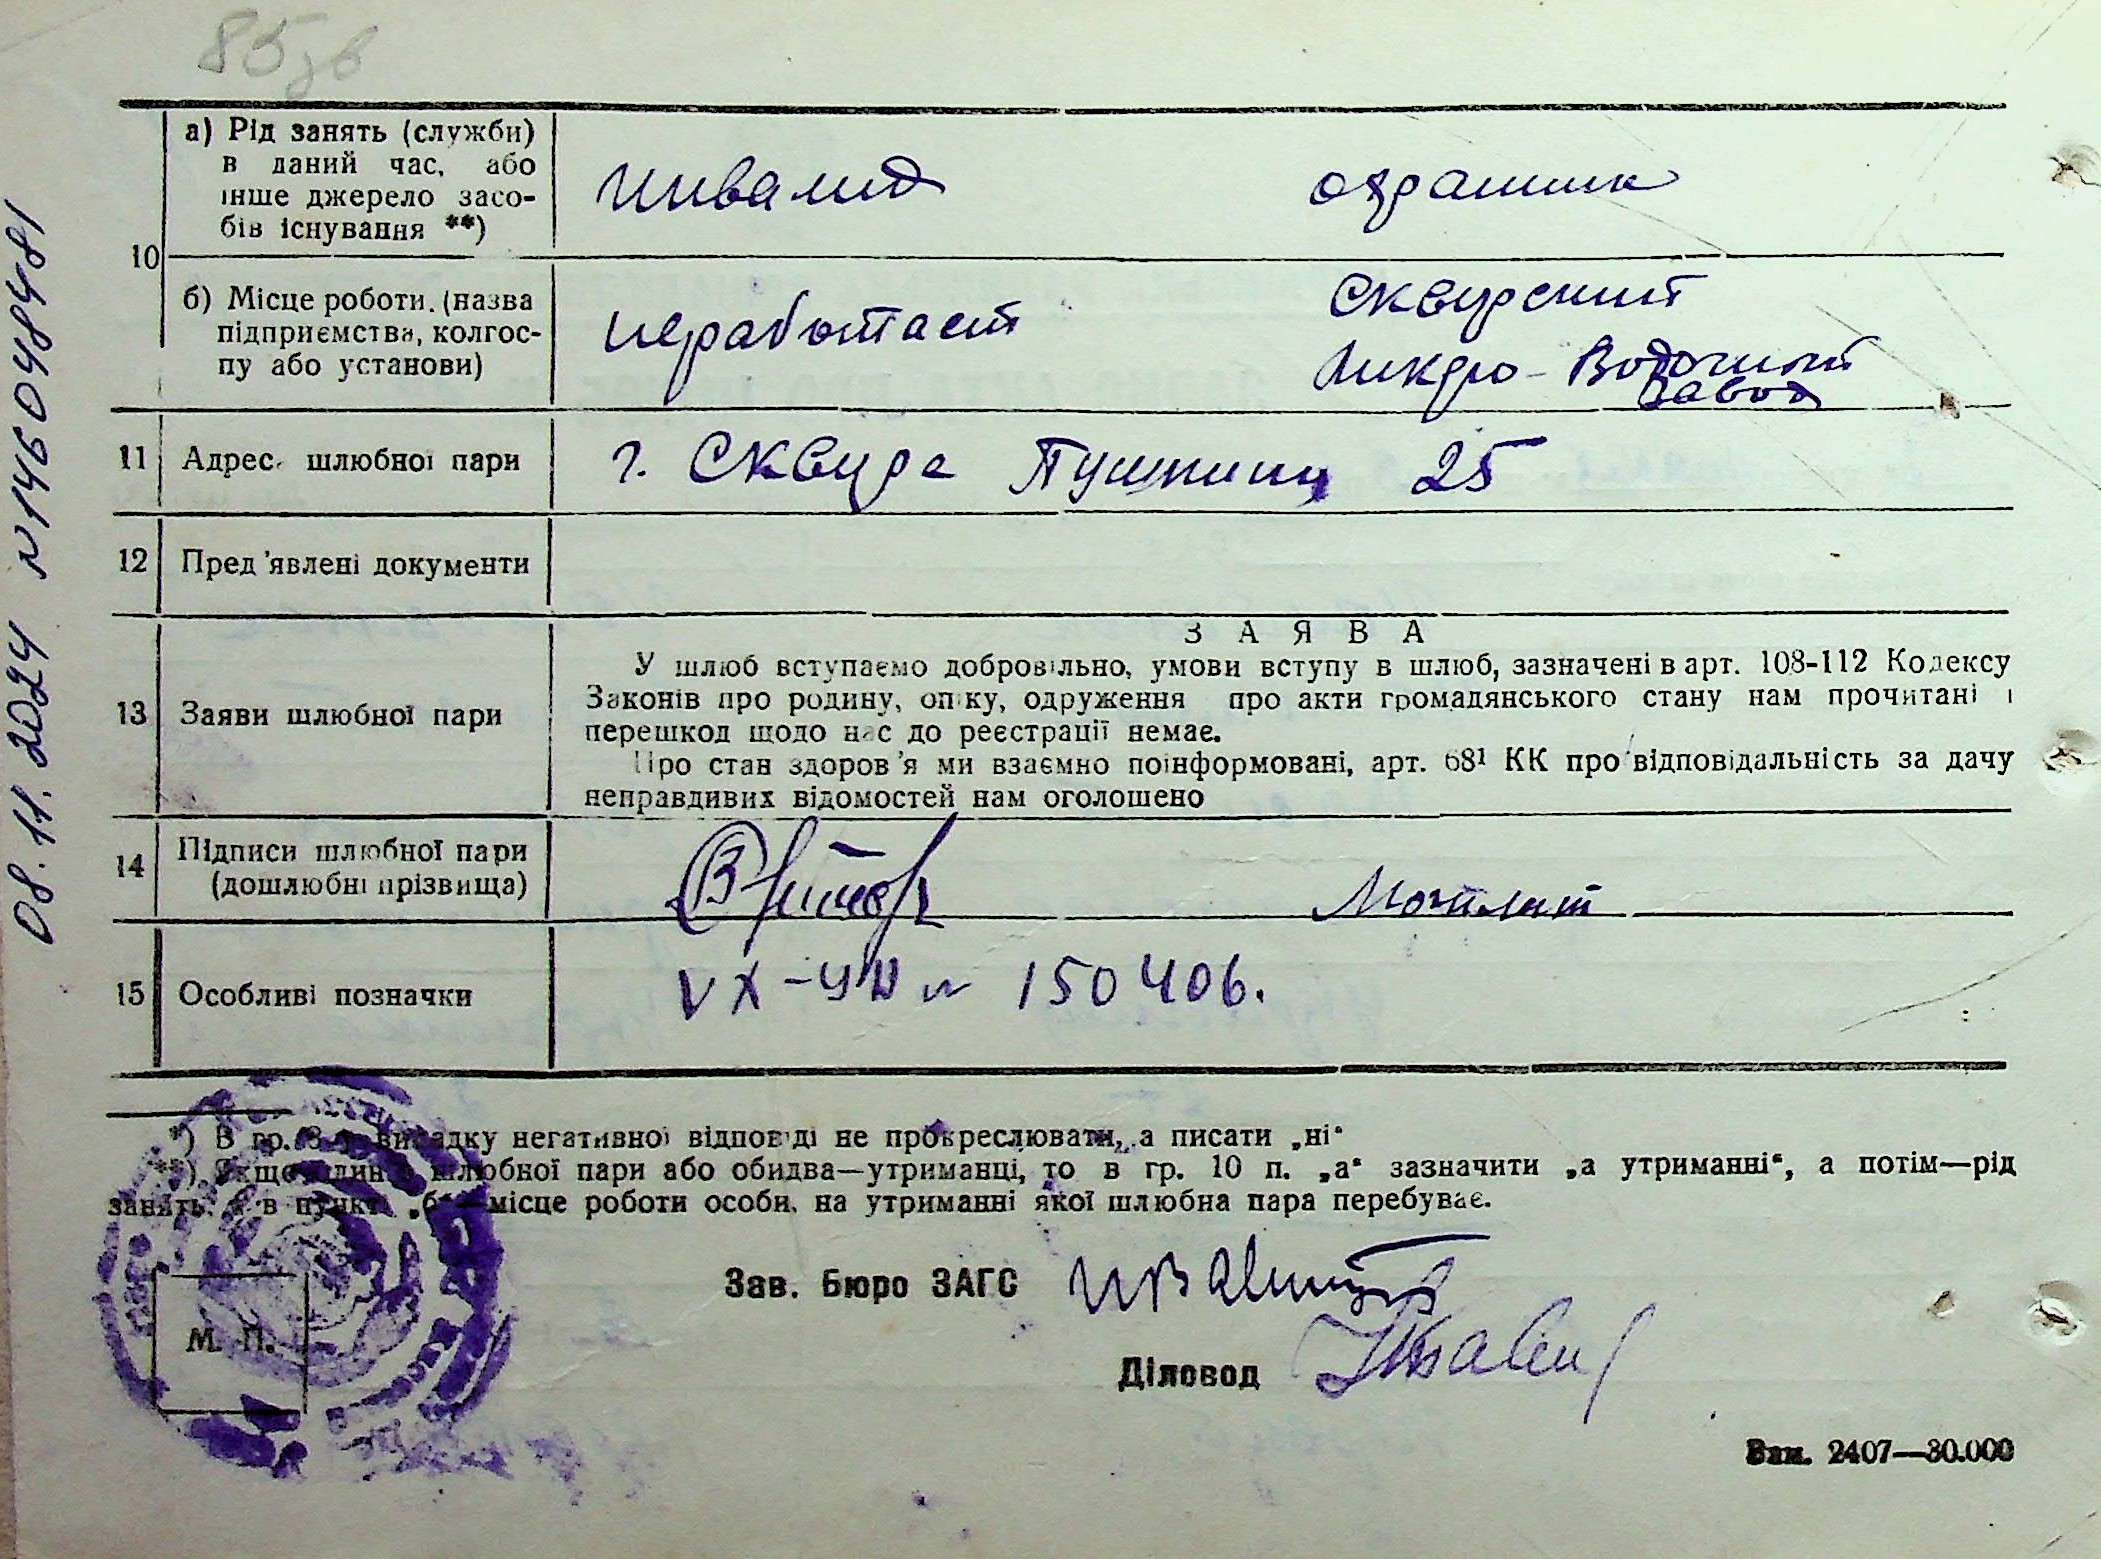 85зв
08.11.2024 N146048481
10
а) Рід занять (служби)
в даний час, або
інше джерело засо-
бів існування **)
инвалид
охранник
б) Місце роботи. (назва
підприємства, колгос-
пу або установи)
неработает
Сквирский
Ликеро-Водочный
завод
11 Адрес шлюбної пари
г. Сквира Пушкина 25
12 Пред'явлені документи
13 Заяви шлюбної пари
ЗАЯВА
У шлюб вступаємо добровільно, умови вступу в шлюб, зазначені в арт. 108-112 Кодексу
Законів про родину, опіку, одруження про акти громадянського стану нам прочитані і
перешкод щодо нас до реєстрації немає.
Про стан здоров'я ми взаємно поінформовані, арт. 68¹ КК про відповідальність за дачу
неправдивих відомостей нам оголошено
14 Підписи шлюбної пари
(дошлюбні прізвища)
15 Особливі позначки
N 150406.
*) В гр. 8 у випадку негативної відповіді не прокреслювати, а писати „ні“
**) Якщо один з шлюбної пари або обидва—утриманці, то в гр. 10 п. „а“ зазначити „а утриманні“, а потім—рід
занять, а в пункті „б“—місце роботи особи, на утриманні якої шлюбна пара перебуває.
Зав. Бюро ЗАГС
Діловод
М. П.
Зам. 2407—30.000